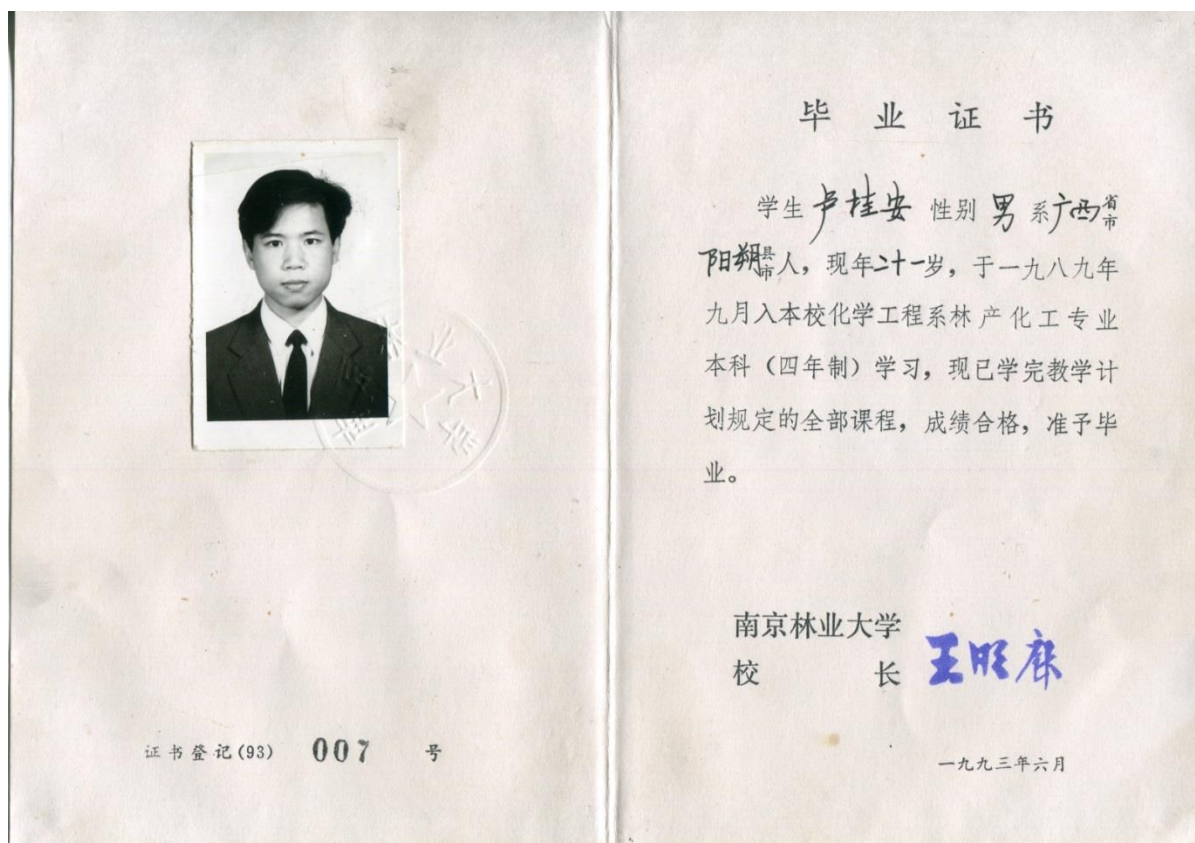 证书登记(93) 007 号
毕业证书
学生卢桂安 性别男 系广西省市
阳朔县市人，现年二十一岁，于一九八九年
九月入本校化学工程系林产化工专业
本科（四年制）学习，现已学完教学计
划规定的全部课程，成绩合格，准予毕
业。
南京林业大学
校长
一九九三年六月